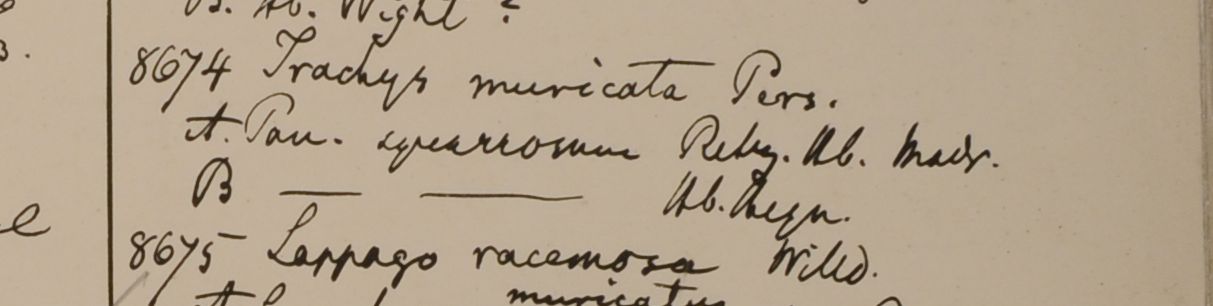 B. Hb. Wight?
8674 Trachys muricata Pers.
A. Pan. squarrosum Retz. Hb. Madr.
B — — Hb. Heyn.
8675 Lappago racemosa Willd.
muricatus